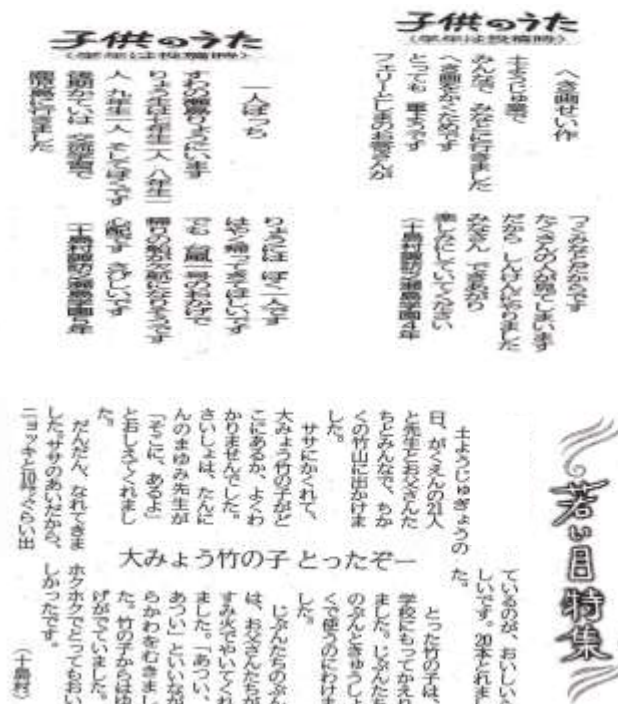 子供のうた
〈学年は投稿時〉
へき画せい作
土ようじゅ業で
みんなで みなとに行きました
へき画をかくためです
とっても 重ようです
フェリーとしまのお客さんが
つくみなとだからです
たくさんの人が見てしまいます
だから しんけんにやりました
みなさん できあがり
楽しみにしていてください
（十島村諏訪之瀬島学園4年
子供のうた
〈学年は投稿時〉
一人ぼっち
にいます
りょう生は七年生一人 八年生一
人 九年生一人 そしてぼくです
後期かていは 交流学習で
鹿児島に行きました
りょうには ぼく一人です
はやく帰ってきてほしいです
でも 台風 号のおかげで
帰りの船が欠航になりそうです
心配です さびしいです
（十島村諏訪之瀬島学園5年
若い目特集
大みょう竹の子 とったぞー
土ようじゅぎょうの
日、がくえんの21人
と先生とお父さんた
ちとみんなで、ちか
くの竹山に出かけま
した。
ササにかくれて、
大みょう竹の子がど
こにあるか、よくわ
かりませんでした。
さいしょは、たんに
んのまゆみ先生が
「そこに、あるよ」
とおしえてくれまし
た。
だんだん、なれてきま
した。ササのあいだから、
ニョッキと10㌢ぐらい出
ているのが、おいしいら
しいです。20本とれまし
た。
とった竹の子は、
学校にもってかえり
ました。じぶんたち
のぶんときゅうしょ
くで使うのにわけま
した。
じぶんたちのぶん
は、お父さんたちが
すみ火でやいてくれ
ました。「あつい、
あつい」といいなが
らかわをむきまし
た。竹の子からはゆ
げがでていました。
ホクホクでとってもおい
しかったです。
（十島村）